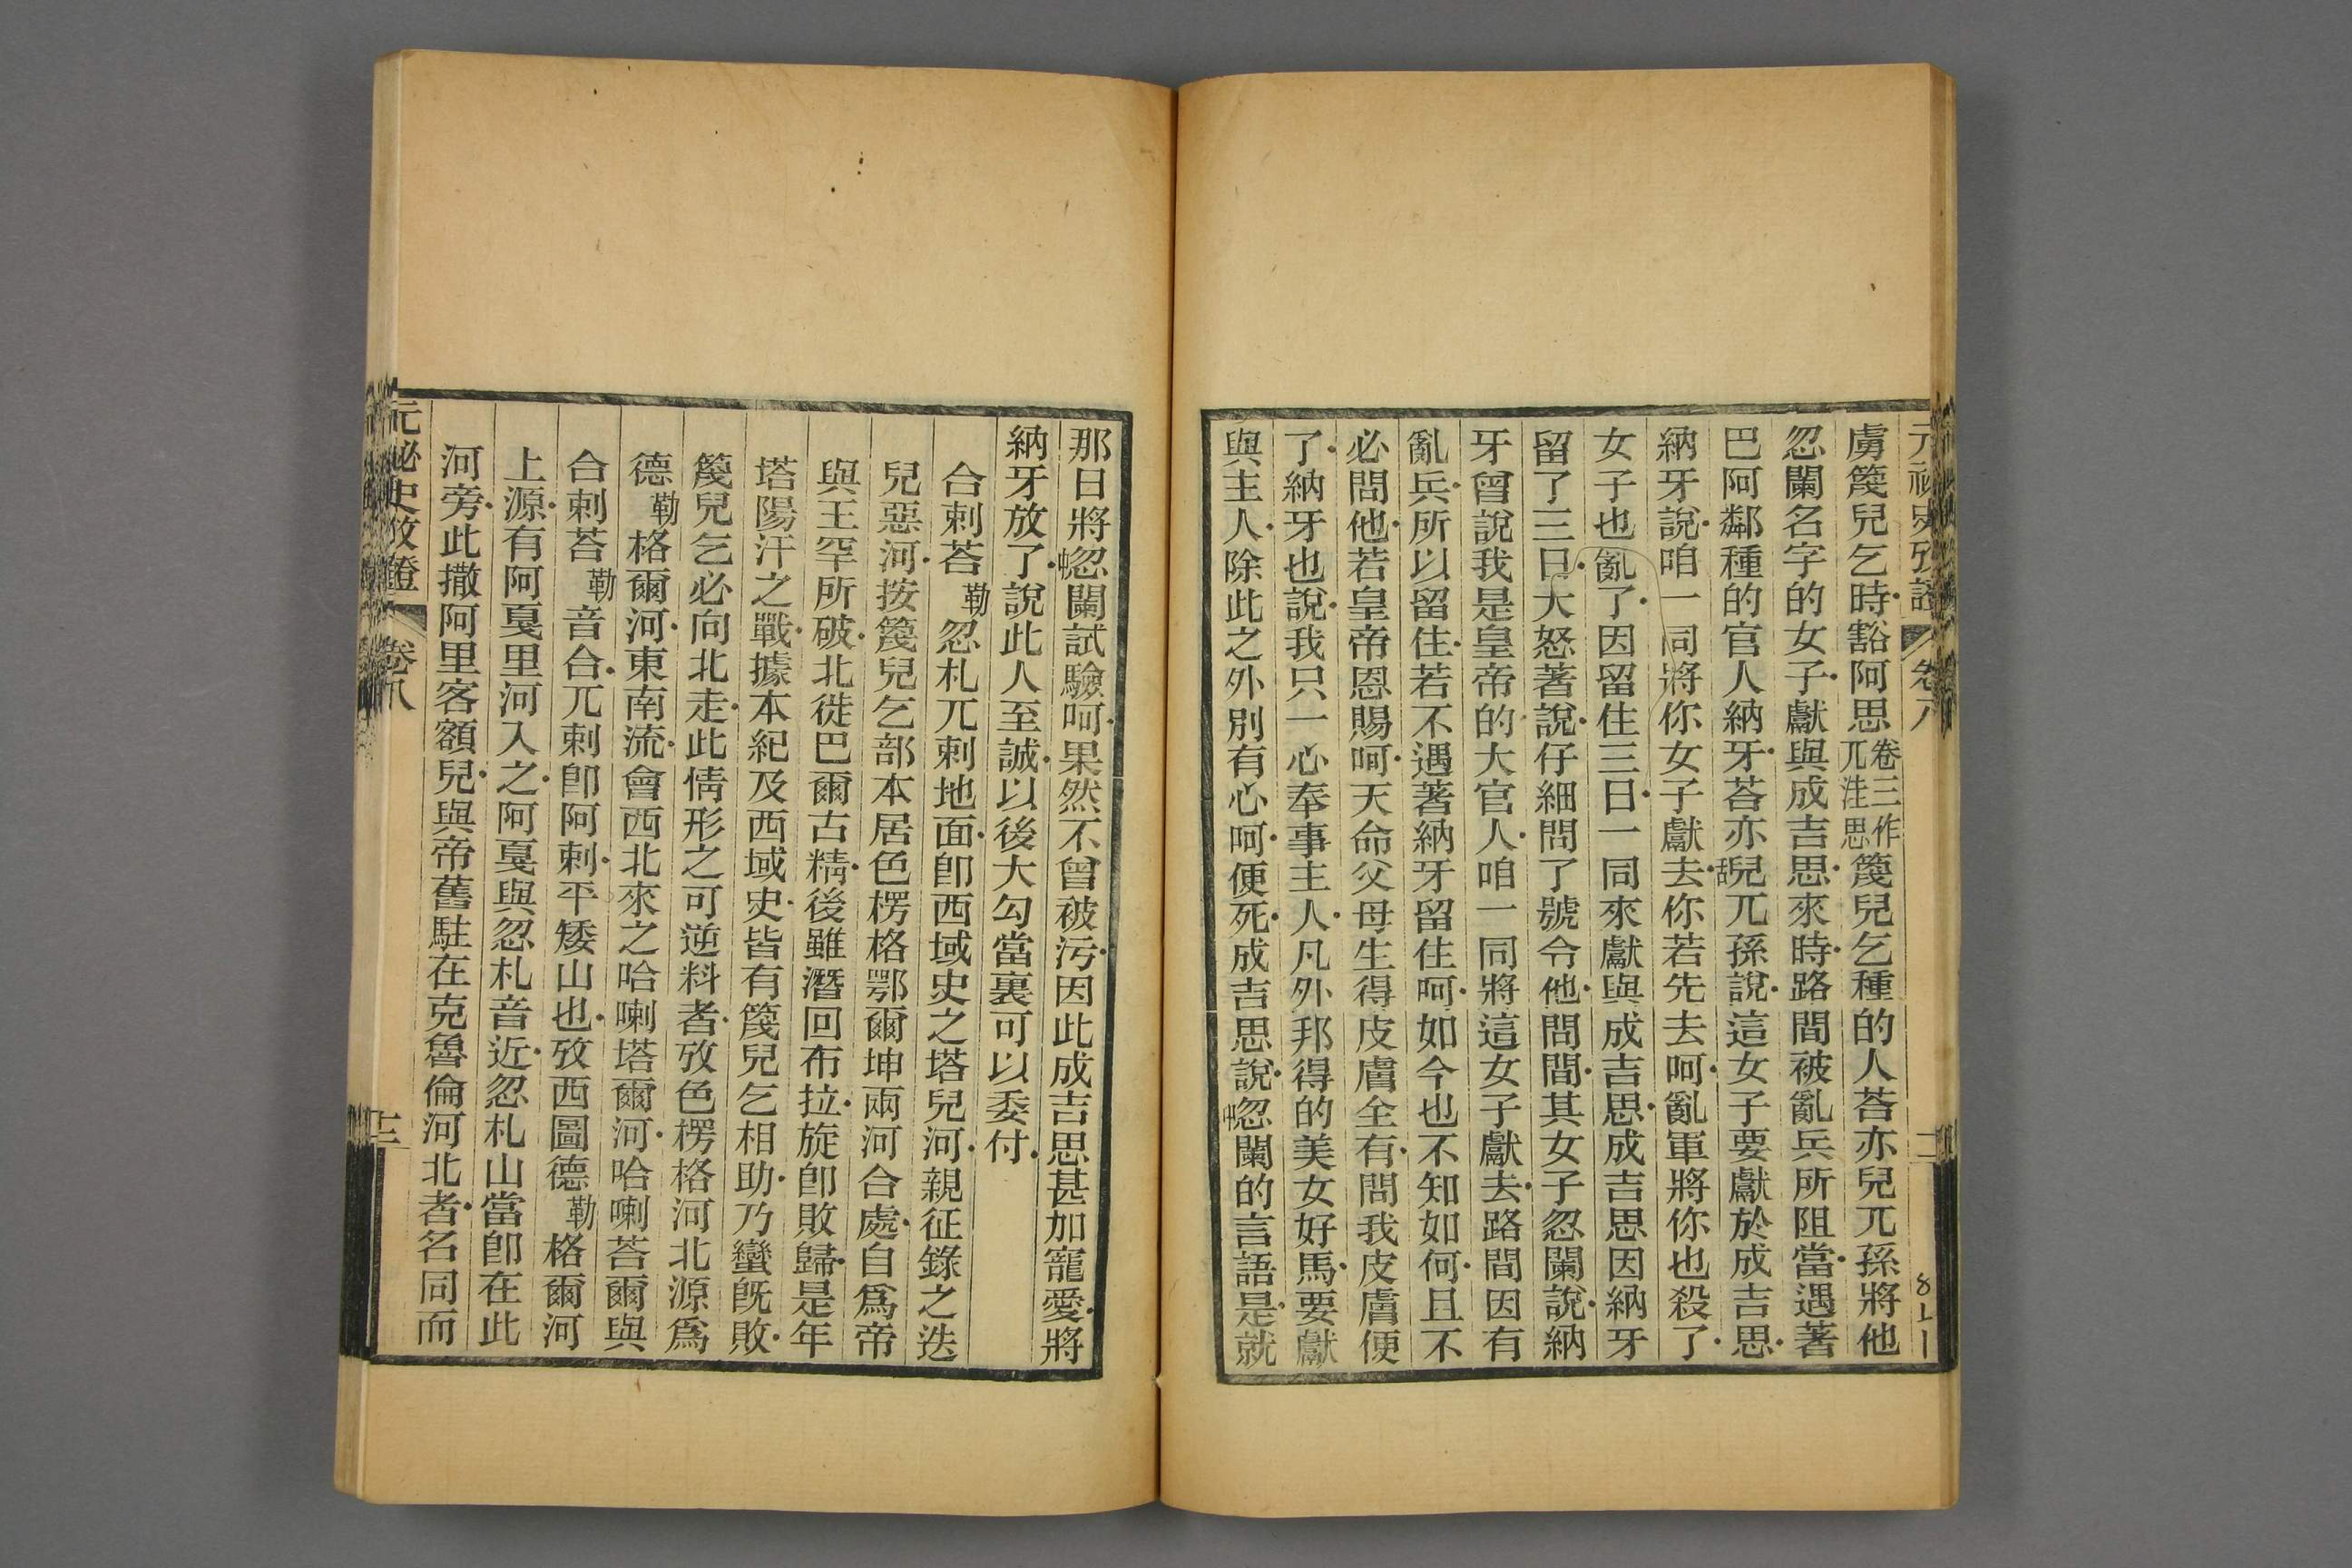 元祕史攷證 卷八 二
虜篾兒乞時豁阿思卷三作兀洼思篾兒乞種的人荅亦兒兀孫將他
忽闌名字的女子獻與成吉思來時路間被亂兵所阻當遇著
巴阿鄰種的官人納牙荅亦兒兀孫說這女子要獻於成吉思
納牙說咱一同將你女子獻去你若先去呵亂軍將你也殺了
女子也亂了因留住三日一同來獻與成吉思成吉思因納牙
留了三日大怒著說仔細問了號令他問間其女子忽闌說納
牙曾說我是皇帝的大官人咱一同將這女子獻去路間因有
亂兵所以留住若不遇著納牙留住呵如今也不知如何且不
必問他若皇帝恩賜呵天命父母生得皮膚全有問我皮膚便
了納牙也說我只一心奉事主人凡外邦得的美女好馬要獻
與主人除此之外別有心呵便死成吉思說中忽闌的言語是就
那日將中忽闌試驗呵果然不曾被污因此成吉思甚加寵愛將
納牙放了說此人至誠以後大勾當裏可以委付
合剌荅勒忽札兀剌地面卽西域史之塔兒河親征錄之迭
兒惡河按篾兒乞部本居色楞格鄂爾坤兩河合處自爲帝
與王罕所破北徙巴爾古精後雖潛回布拉旋卽敗歸是年
塔陽汗之戰據本紀及西域史皆有篾兒乞相助乃蠻旣敗
篾兒乞必向北走此情形之可逆料者攷色楞格河北源爲
德勒格爾河東南流會西北來之哈喇塔爾河哈喇荅爾與
合剌荅勒音合兀剌卽阿剌平矮山也攷西圖德勒格爾河
上源有阿戛里河入之阿戛與忽札音近忽札山當卽在此
河旁此撒阿里客額兒與帝舊駐在克魯倫河北者名同而
元祕史攷證 卷八 三